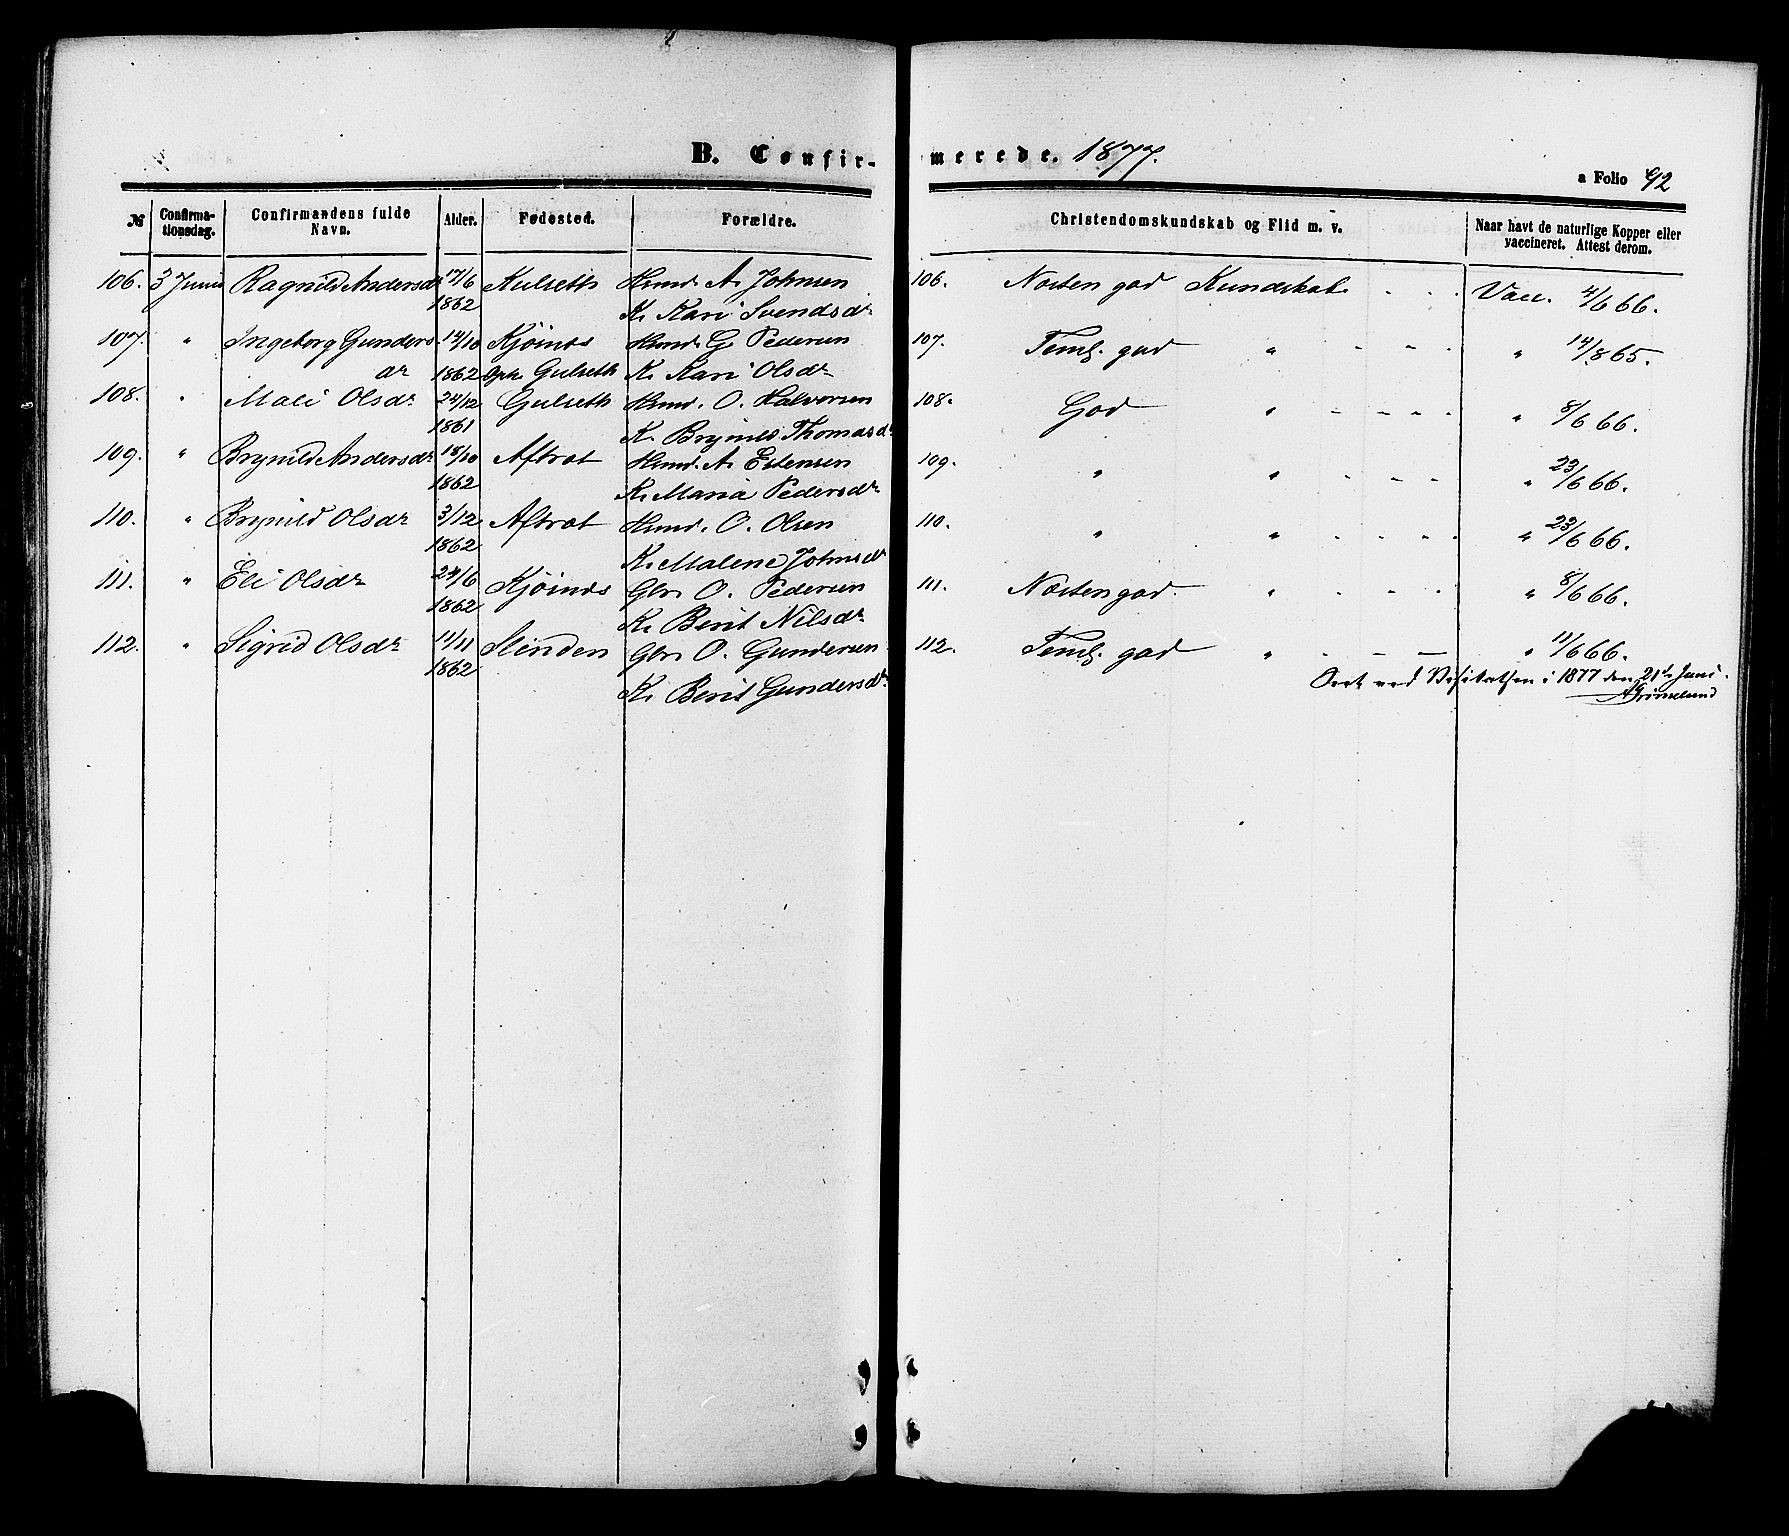 B. Confirmerede. 1877.
a Folio 92
№ Confirmationsdag. Confirmandens fulde Navn. Alder. Fødested. Forældre. Christendomskundskab og Flid m. v. Naar havt de naturlige Kopper eller vaccineret. Attest derom.
106. 3 Juni Ragnild Andersdr 17/6 Kulseth Huusmd. A. Johnsen 106. Næsten god Kundskab - - - Vacc. 4/6 66.
1862 K. Kari Svendsdr
107. " Ingeborg Gunders 14/10 Kjøinds Huusmd. G. Pedersen 107. Teml. god " - - - " 14/8 65.
dr 1862 Oph. Gulseth K. Kari Olsdr
108. " Mali Olsdr 24/12 Gulseth Huusmd. O. Halvorsen 108. God " - - - - " 8/6 66.
1861 K. Brynild Thomasdr
109. " Brynild Andersdr 18/10 Aftrøt Huusmd. A. Estensen 109. " " - - - " 23/6 66.
1862 K. Maria Pedersdr
110. " Brynild Olsdr 3/12 Aftrøt Huusmd. O. Olsen 110. " " - - - - " 23/6 66.
1862 K. Malene Johnsdr
111. " Eli Olsdr 24/6 Kjøinds Gbr. O. Pedersen 111. Næsten god " - - - " 8/6 66.
1862 K. Berit Nilsdr
112. " Sigrid Olsdr 11/11 Stenden Gbr. O. Gundersen 112. Teml. god " - - - " 11/6 66.
1862 K. Berit Gundersdr
ved Visitatsen i 1877 den 21de Juni.
A Grimelund